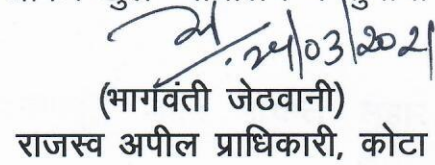 24/03/2021
(भागंवंती जेठवानी)
राजस्व अपील प्राधिकारी, कोटा